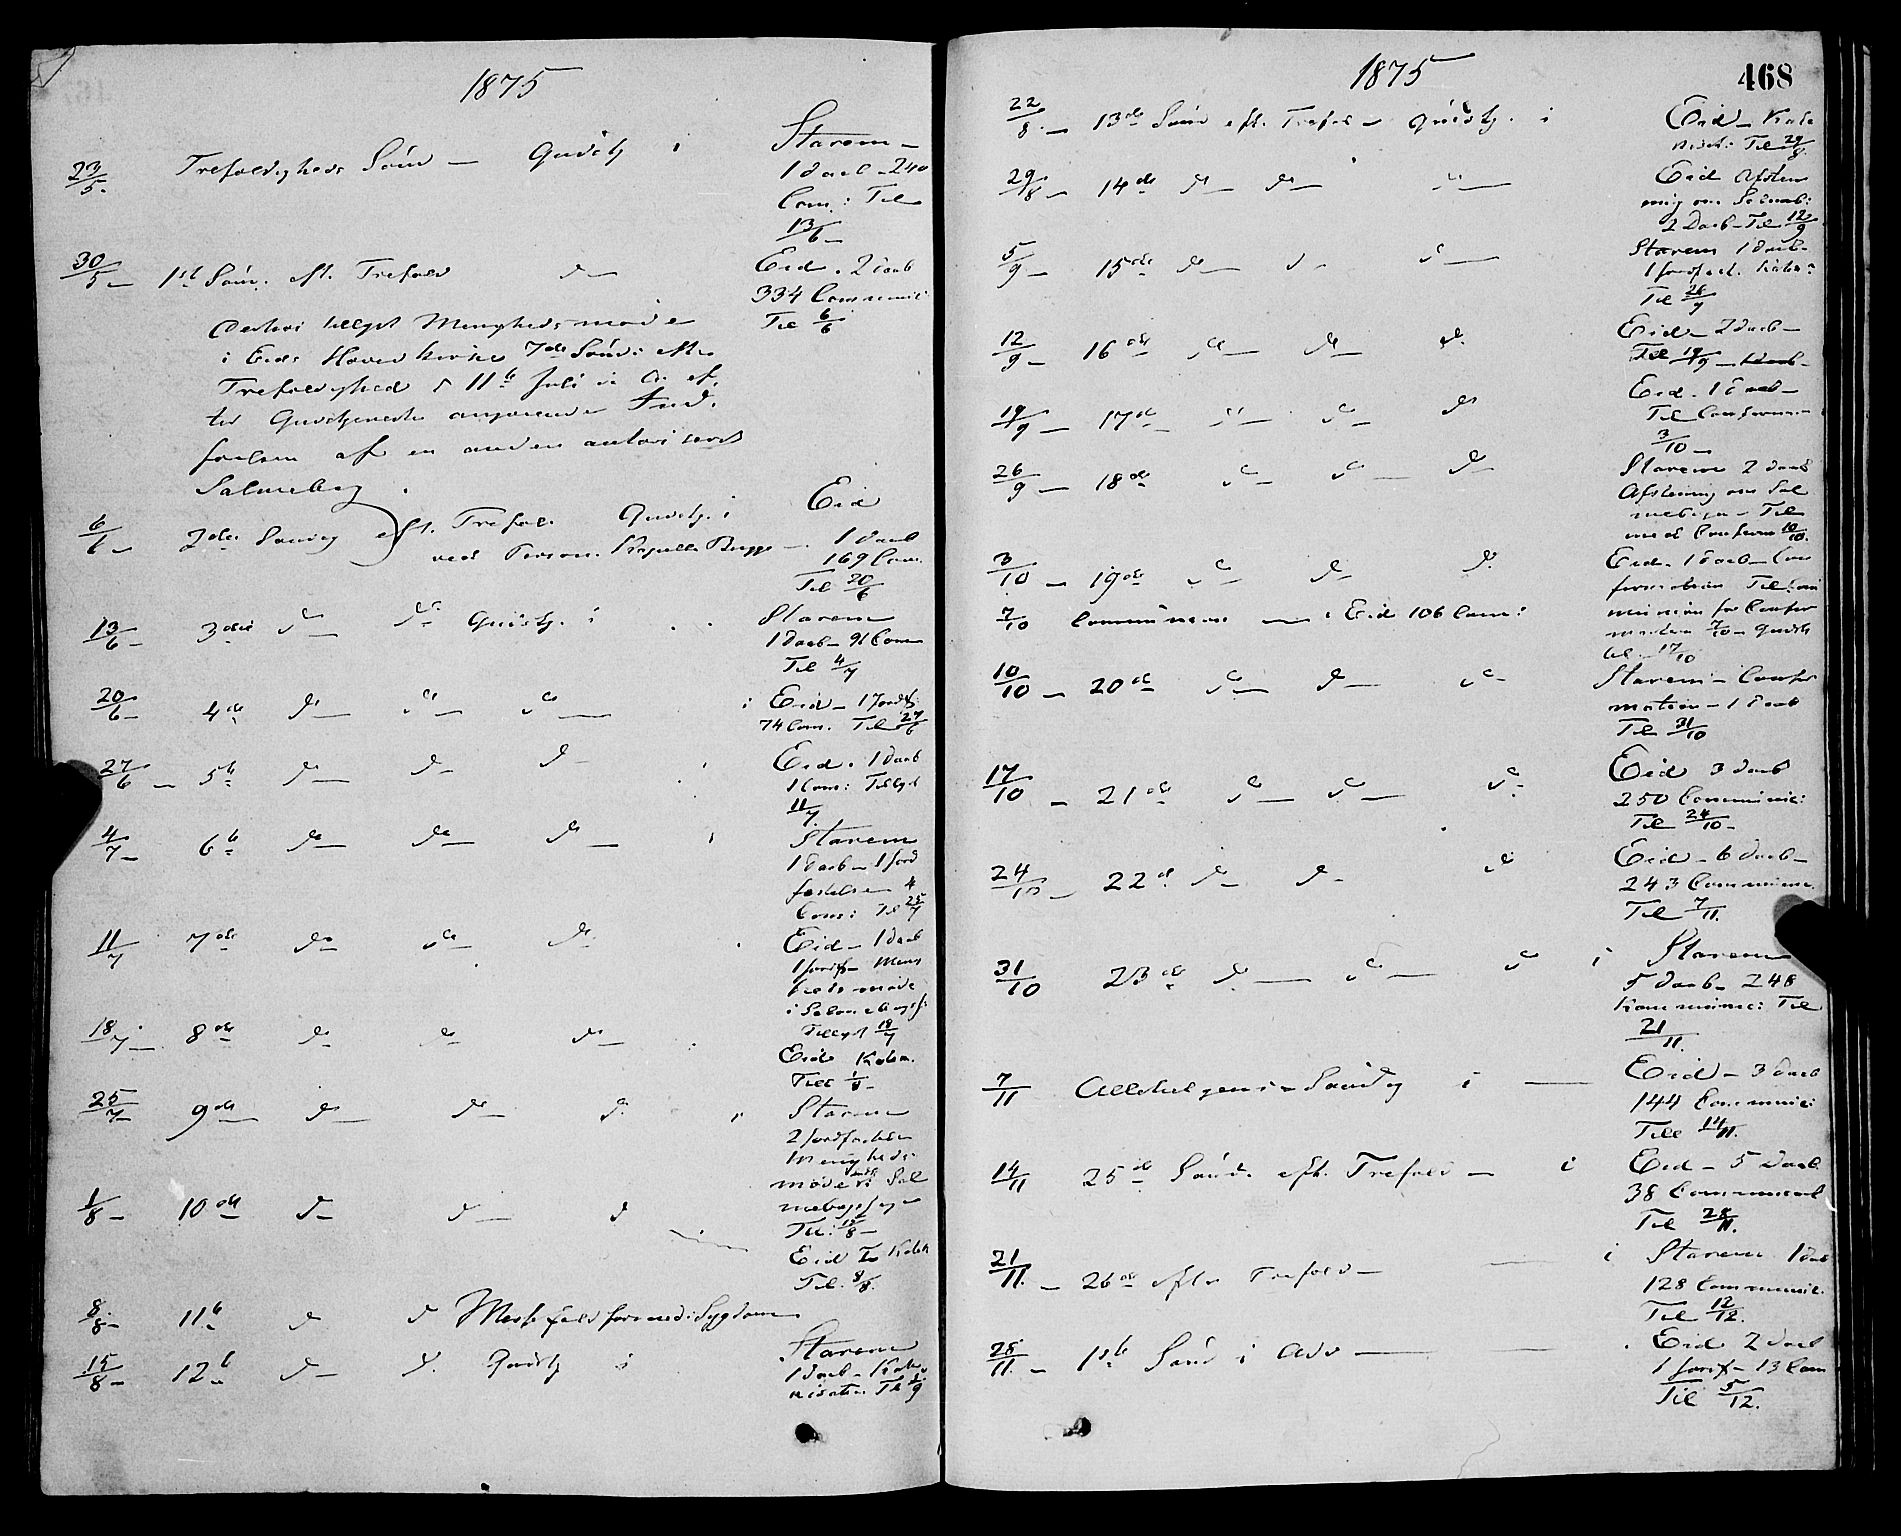 1875
23/5. Trefoldigheds Sönd — Gudstj i Starem —
1 daab - 240
Com: Til
13/6 —
30/5 — 1ste Sönd. eft. Trefold d — Eid. 2 daab
334 Communic:
Til 6/6
Derhos tillyst Menighedsmøde
i Eids Hovedkirke 7de Sönd: efter
Trefoldighed d 11te Juli d. A. ef-
ter Gudstjeneste angaaende Ind-
førelsen af en anden autoriseret
Salmebog.
6/6 — 2den Sondag eft. Trefol. Gudstj. i Eid
ved Person. Kapellan Bugge — 1 daab
169 Com.
Til 20/6
13/6 — 3die d — do Gudstj. i Starem
1 daab — 91 Com
Til 4/7
20/6 — 4de d — do — do — i Eid — 1 Jordf.
74 Com. Til 27/6
27/6 — 5te d — d — d — i Eid. 1 daab
1 Com: Tillyst
11/7.
4/7 — 6te do — do — do — i Starem
1 daab — 1 jord
fæstelse 4
Com: Til 25/7
11/7 7de do do — do Eid — 1 daab
1 jordf — Menig
heds møde
i Salmebogsf:
Tillyst 18/7
18/7 — 8de d — d — d — Eid Kate.
Till 1/8 —
25/7 — 9de — d — do — d. i Starem
2 jordfæstelse
Menigheds
møde Sal
mebogssagen
Til: 15/8 —
1/8 — 10de d — d — d Eid Kate
Til. 8/8.
8/8 — 11te d d Messefald formed: Sygdom
15/8 — 12te d — d. Gudstj i Starem
1 daab — Kate
kisatio. Til 5/9
1875
468
22/8. — 13de Sönd eft. Trefol — Gudstj. i Eid — Kate
Til 29/8.
29/8 — 14de d — do — d — Eid Afstem
ning om Salmeb:
2 Daab — Til 12/9
5/9 — 15de d — d — d — Starem 1 daab —
1 jordfæst. Kate:
Til 26/9
12/9 — 16de d — do — d. Eid — 2 daab —
Til 19/9 — 1 daab —
19/9 — 17de d — do — do Eid. 1 daab —
Til Conferm
3/10 —
26/9 — 18de d — d — d Starem 2 daab
Afstemning om Sal
mebogen — Til
med Conferm 10/10.
3/10 — 19de d — d — d. Eid. 1 daab — Con
fermation Til Com
munion for Confer
manten 7/10 — Gudstj
til 17/10
7/10 Communion — i Eid 106 Com:
10/10 — 20de d — d — d — Starem — Confer
mation — 1 daab
Til 31/10
17/10 — 21de d — d — d — Eid 3 daab
250 Communic:
Til 24/10 —
24/10 — 22de d — d — d Eid — 6 daab —
243 Communic.
Til 7/11.
31/10 23de d — d — d i Starem
5 daab — 248
Kommunic: Til
21/11.
7/11 Allehelgens — Söndag i — Eid — 3 daab
144 Communic:
Till 14/11.
14/11 25de Sönd. eft. Trefold — i Eid — 5 daab
38 Communic
Til 28/11.
21/11. — 26de efter Trefold — i Starem 1 daab
128 Communic.
Til 12/12.
28/11. — 1ste Sönd i Adv — Eid 2 daab
1 jordf — 13 Com
Til 5/12.